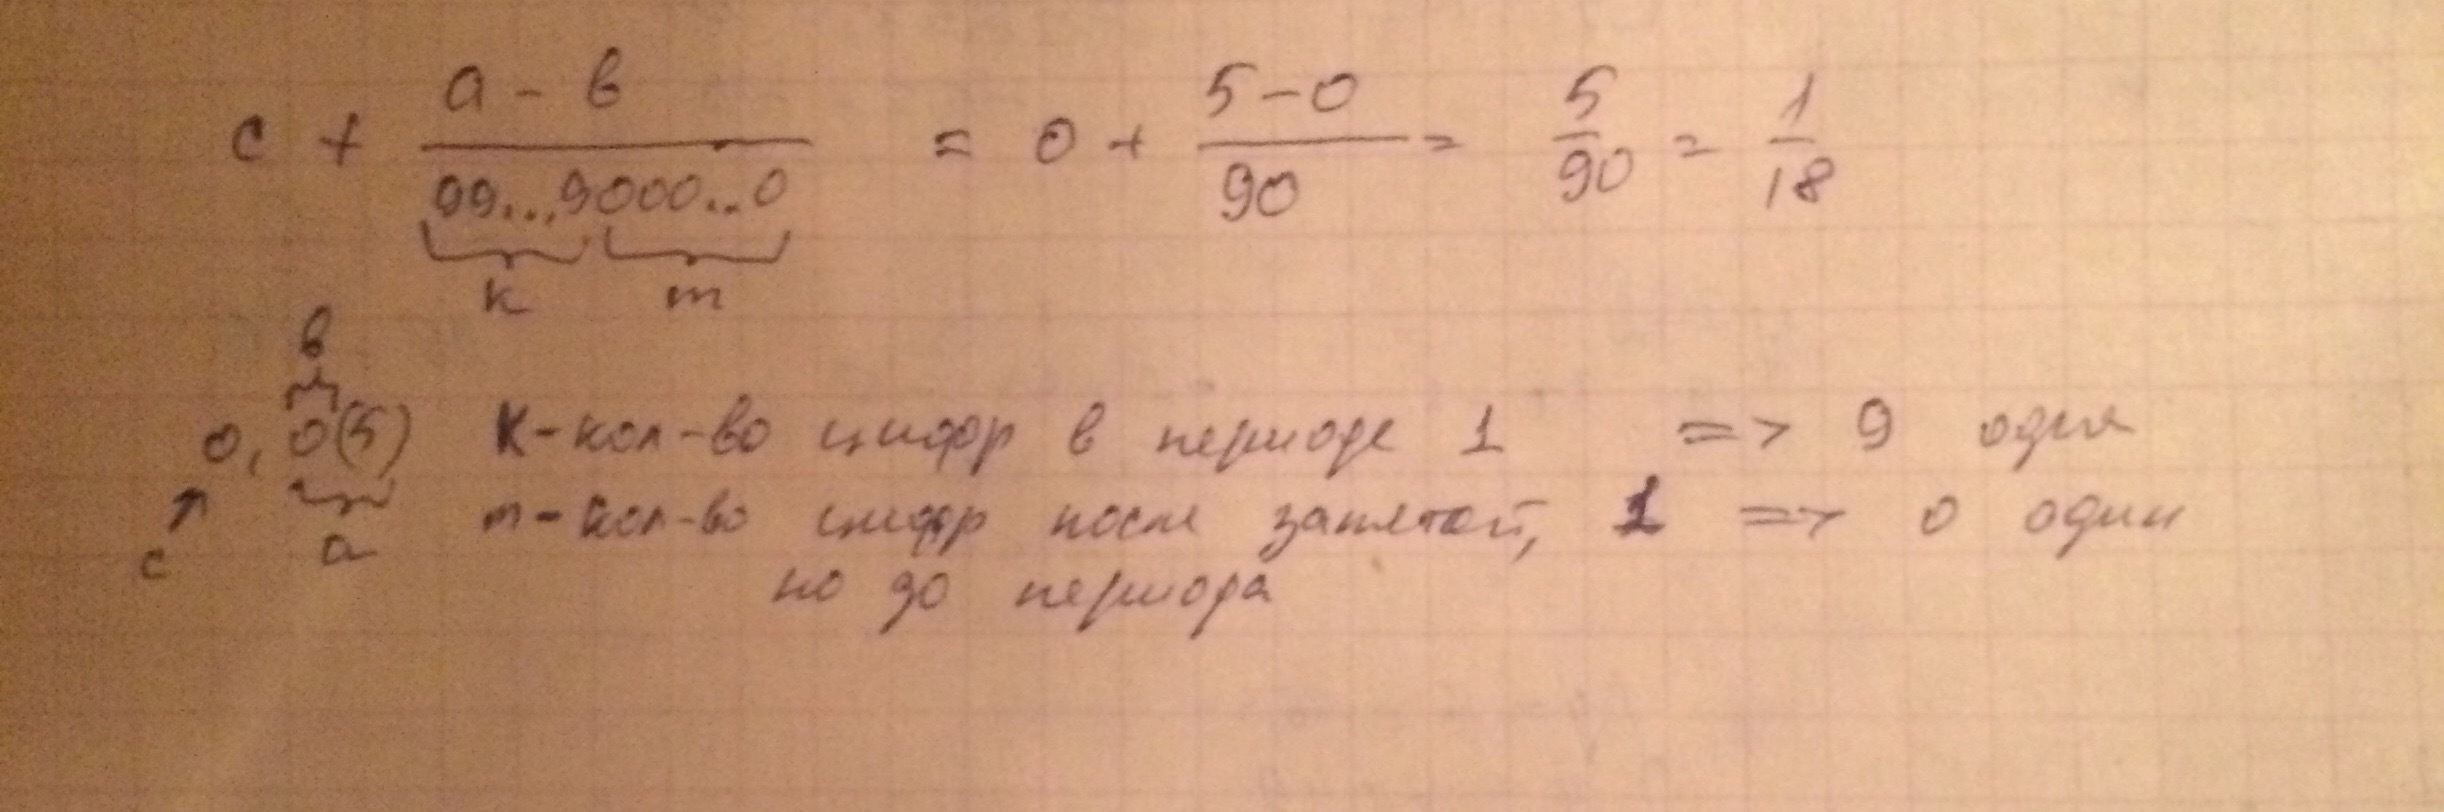 c + (a - в)/(99...9000...0) = 0 + (5-0)/90 = 5/90 = 1/18
к m
в
0, 0(5) К-кол-во цифр в периоде 1 => 9 одна
c a m-кол-во цифр после запятой, 1 => 0 один
но до периода